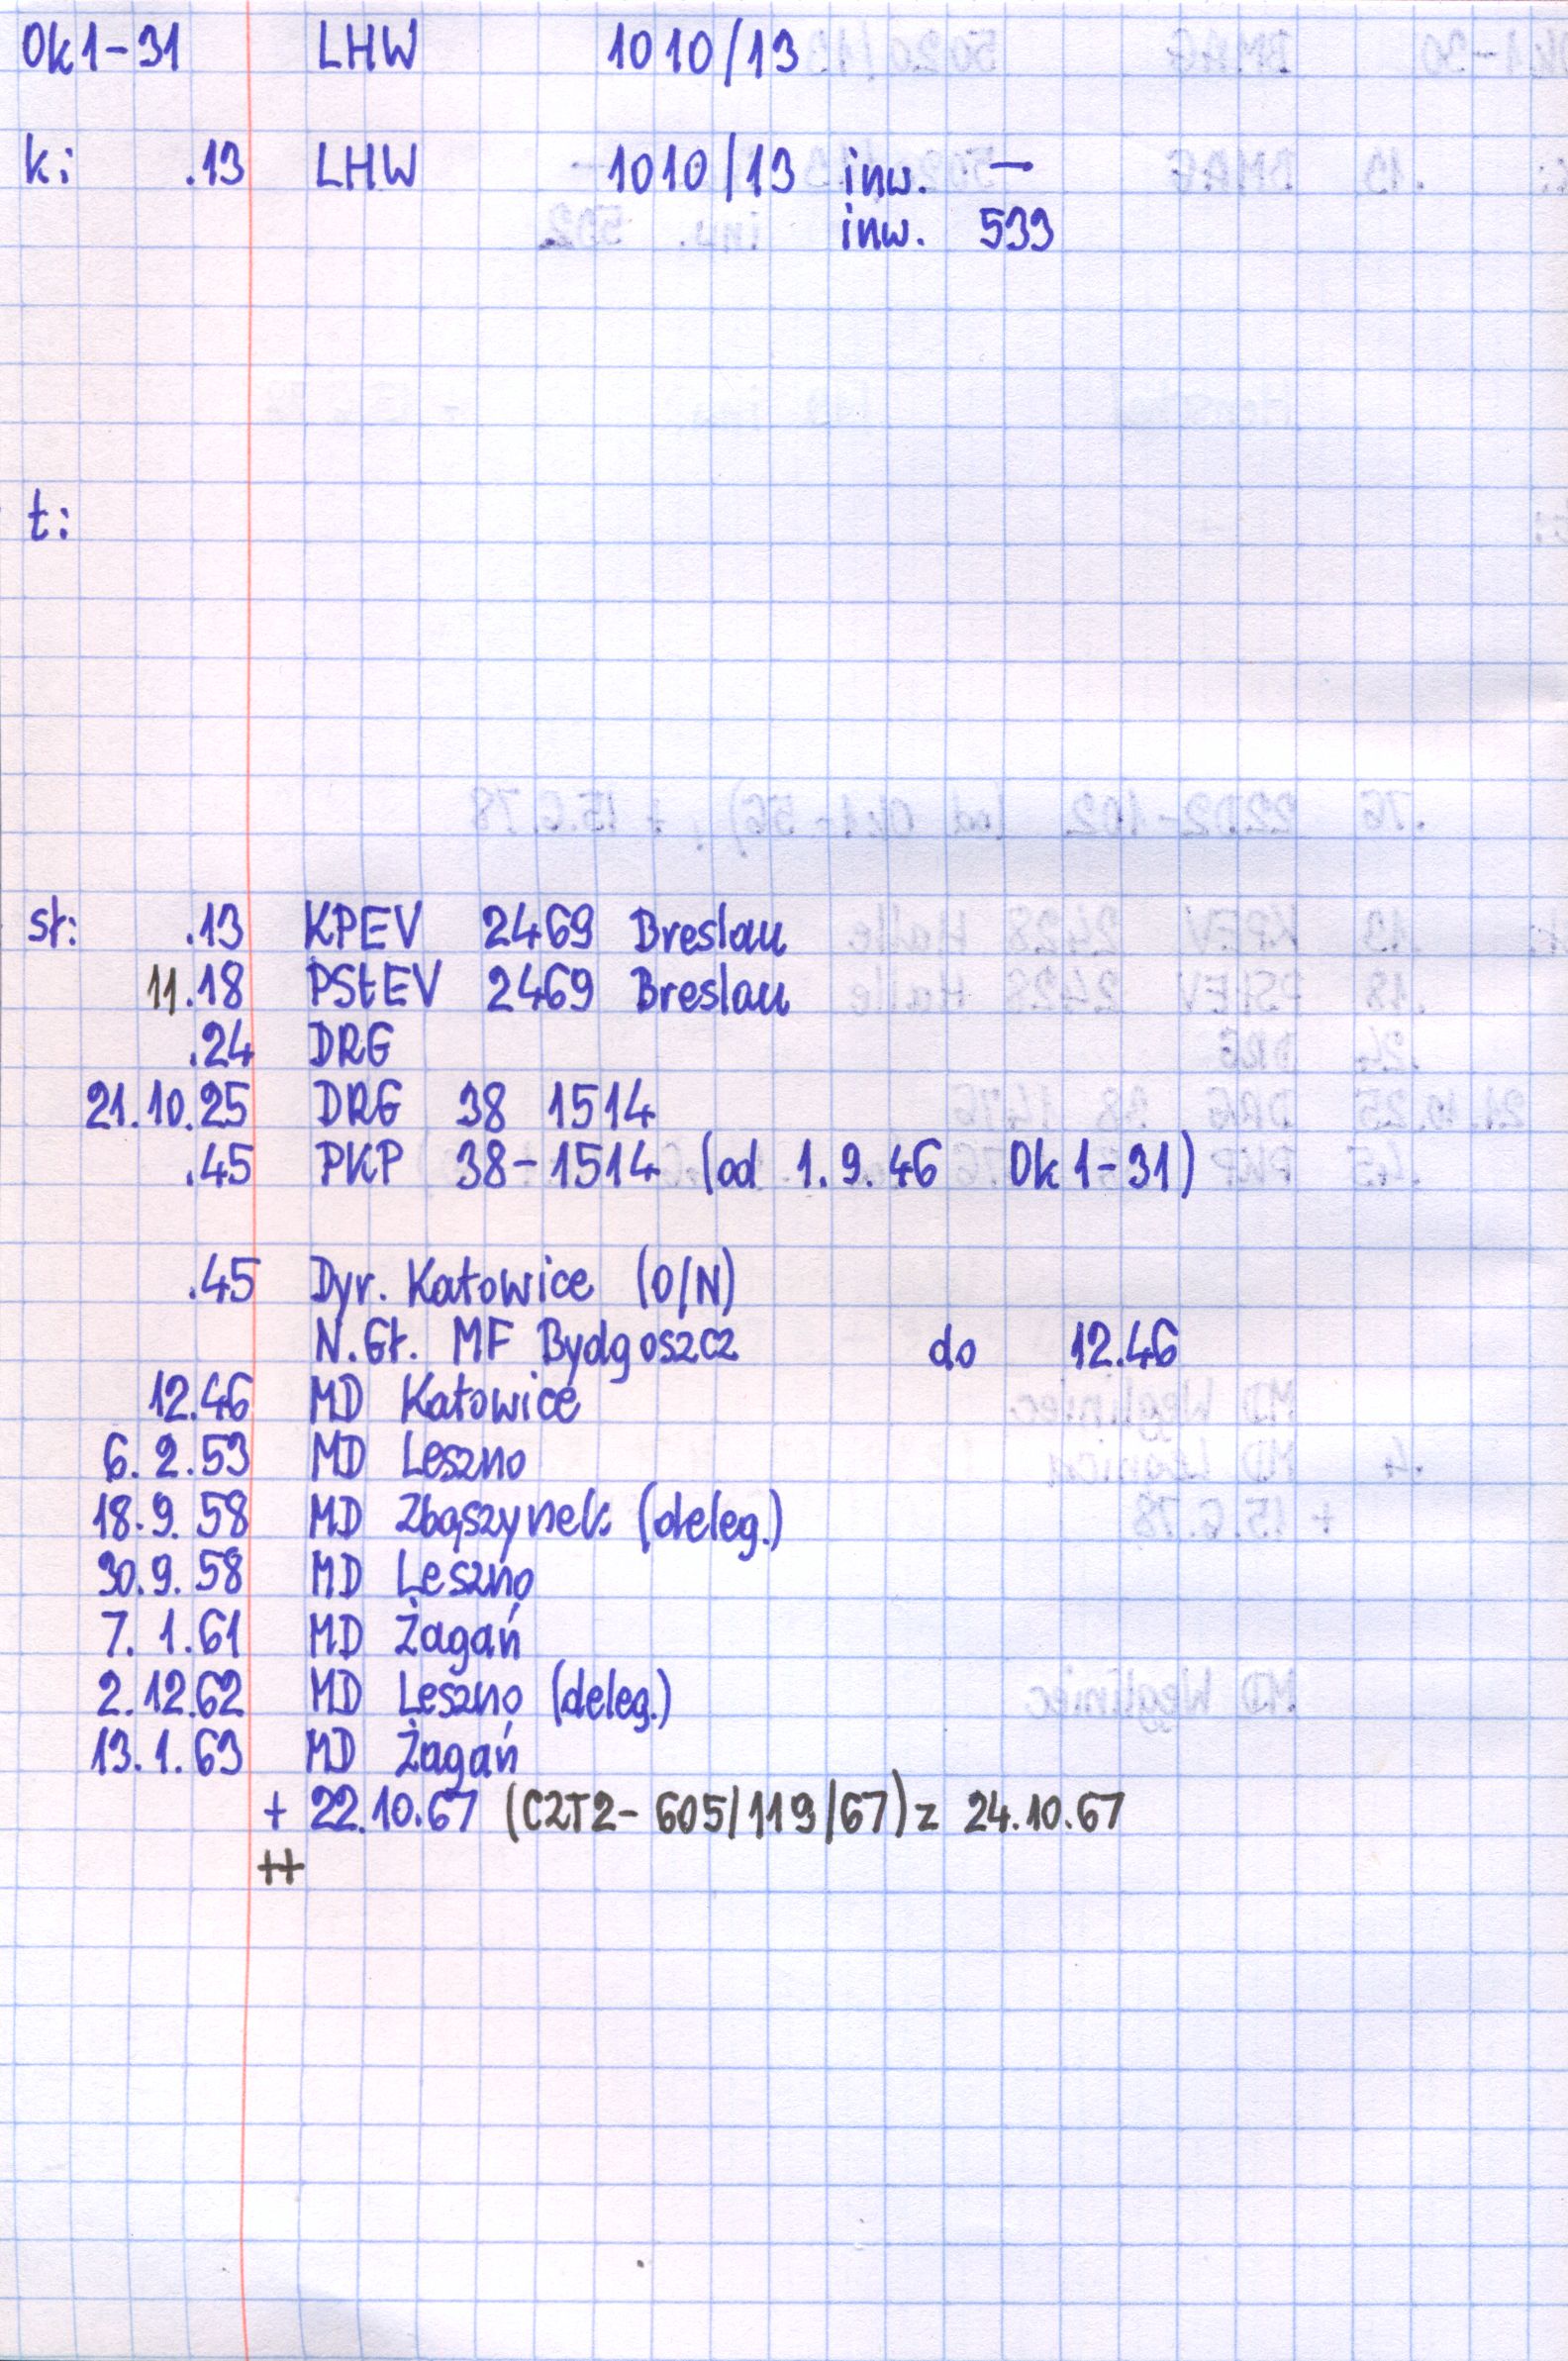 Ok1-31 LHW 1010/13
k: .13 LHW 1010/13 inw. —
inw. 533
t:
st: .13 KPEV 2469 Breslau
11.18 PStEV 2469 Breslau
.24 DRG
21.10.25 DRG 38 1514
.45 PKP 38-1514 (od 1.9.46 Ok1-31)
.45 Dyr. Katowice (O/N)
N.Gł. MF Bydgoszcz do 12.46
12.46 MD Katowice
6.2.53 MD Leszno
18.9.58 MD Zbąszynek (deleg.)
30.9.58 MD Leszno
7.1.61 MD Żagań
2.12.62 MD Leszno (deleg.)
13.1.63 MD Żagań
+ 22.10.67 (C2T2-605/119/67) z 24.10.67
++